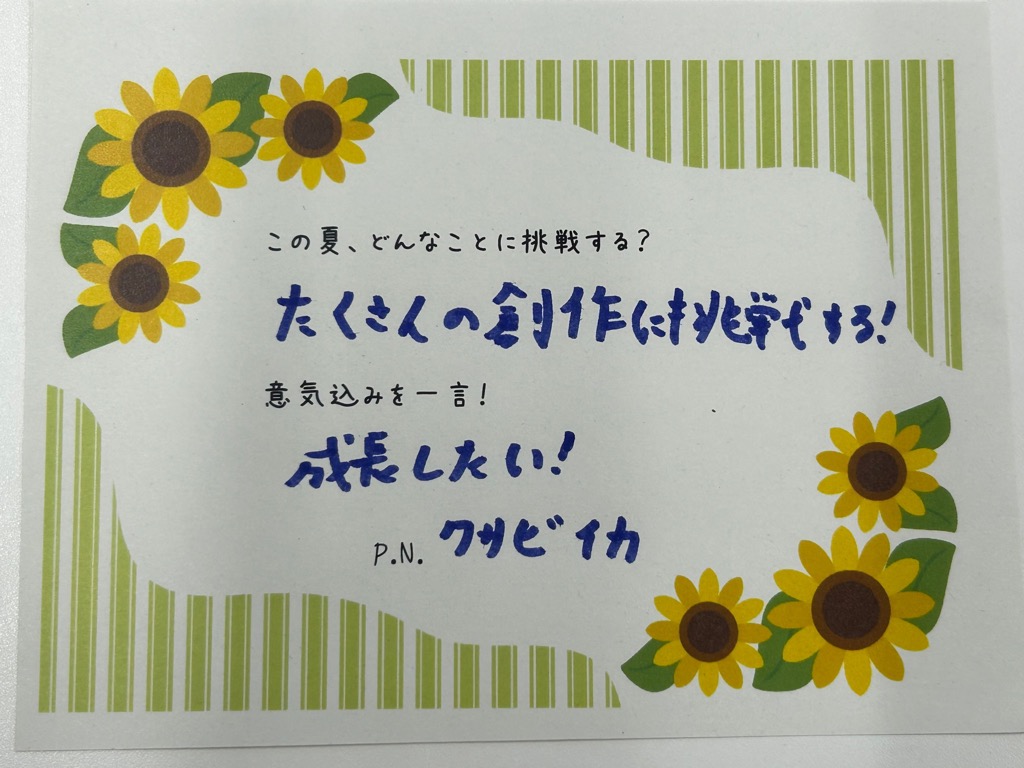 この夏、どんなことに挑戦する？
たくさんの創作に挑戦する！
意気込みを一言！
成長したい！
P.N. クサビイカ